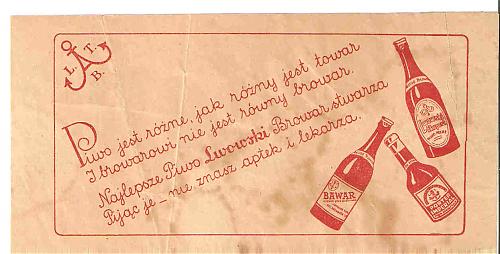 L. T. B.
Piwo jest różne, jak różny jest towar
I browarowi nie jest równy browar.
Najlepsze Piwo Lwowski Browar stwarza
Pijąc je – nie znasz aptek i lekarza.
BAWAR